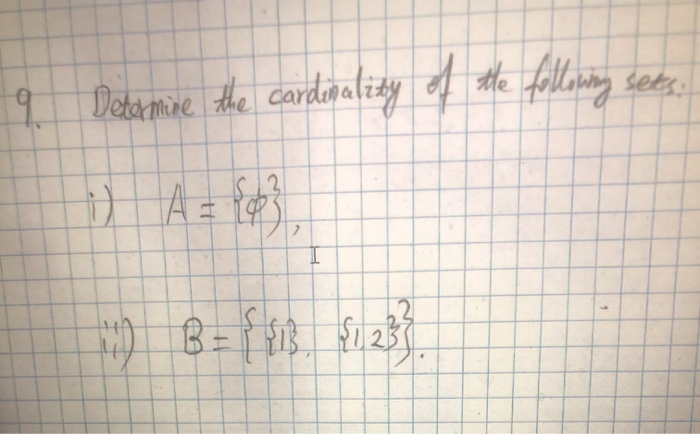 9. Determine the cardinality of the following sets.
i) A = {ϕ},
ii) B = { {1}, {1,2}}.